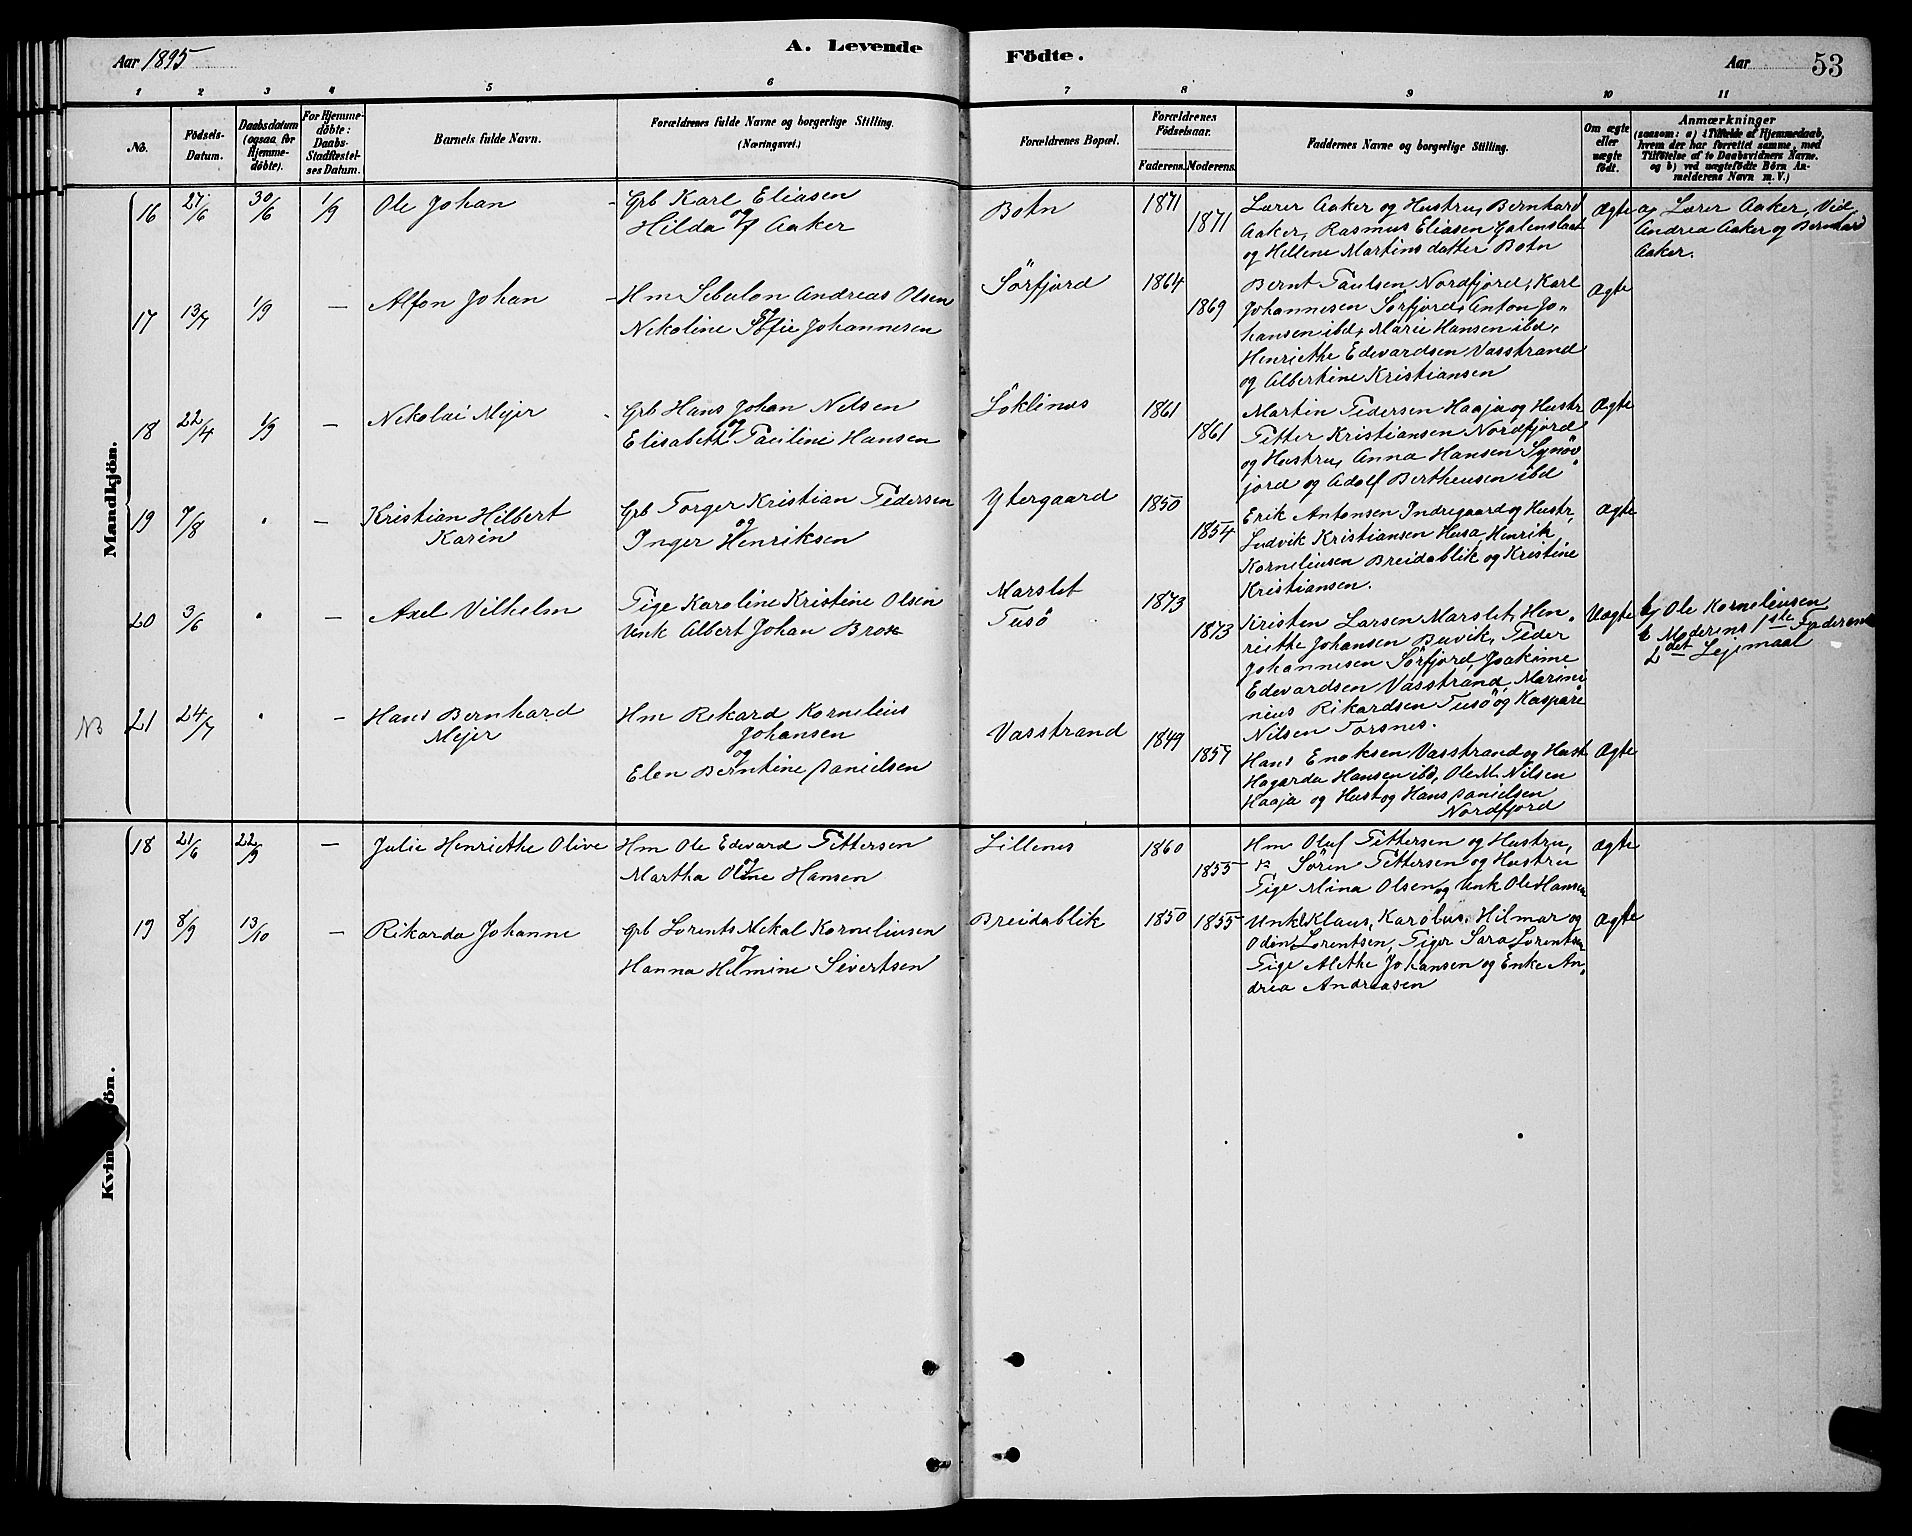 Aar 1895
A. Levende
Födte.
Aar
53
1 2 3 4 5 6 7 8 9 10 11
No.
Födsels-Datum.
Daabsdatum (ogsaa for Hjemmedöbte).
For Hjemmedöbte: Daabs-Stadfæstelses Datum.
Barnets fulde Navn.
Forældrenes fulde Navne og borgerlige Stilling.
(Næringsvei.)
Forældrenes Bopæl.
Forældrenes Födselsaar.
Faderens. Moderens.
Faddernes Navne og borgerlige Stilling.
Om ægte eller uægte födt.
Anmærkninger
(saasom: a) i Tilfælde af Hjemmedaab,
hvem der har forrettet samme, med
Tilföielse af to Daabsvidners Navne.
og b) ved uægtefödte Börn An-
melderens Navn m. V.)
Mandkjön.
16 27/6 30/6 1/9 Ole Johan
Grb Karl Eliasen
og
Hilda Aaker
Botn 1871 1871
Lærer Aaker og Hustru, Bernhard
Aaker, Rasmus Eliasen
og Hellene Martinsdatter Botn
Ægte
a, Lærer Aaker, Vid.
Andrea Aaker og Bernhard
Aaker.
17 13/7 1/9 — Alfon Johan
Hm Sebulon Andreas Olsen
og
Nekoline Sofie Johannesen
Sörfjord 1864 1869
Bernt Paulsen Nordfjord, Karl
Johannesen Sörfjord, Anton Jo-
hansen ibd, Marie Hansen ibd,
Henriethe Edevardsen Vasstrand
og Albertine Kristiansen
Ægte
18 22/4 1/9 — Nekolai Mejer
Grb Hans Johan Nelsen
og
Elisabeth Pauline Hansen
1861 1861
Martin Pedersen Haaja og Hustr
Petter Kristiansen Nordfjord
og Hustru, Anna Hansen
jord og Adolf Bertheusen ibd
Ægte
19 7/8 " — Kristian Hilbert
Karin
Grb Torger Kristian Pedersen
og
Inger Henriksen
Ytergaard 1850 1854
Erik Antonsen Indregaard og Hustr,
Ludvik Kristiansen Husa, Henrik
Korneliusen Breidablik og Kristine
Kristiansen.
Ægte
20 3/6 " — Axel Vilhelm
Pige Karoline Kristine Olsen
Unk Albert Johan Brox
Marslet
Tusö
1873 1873
Kristen Larsen Marslet, Hen-
riethe Johansen Buvik, Peder
Johannesen Sörfjord, Joakime
Edevardsen Vasstrand, Marini
neus Rikardsen Tusö og Kaspare
Nilsen Torsnes.
Uægte
b, Ole Korneliusen
Moderens 1ste Faderens
2det Lejemaal
NB 21 24/7 " — Hans Bernhard
Mejer
Hm Rikard Kornelius
Johansen
og
Elen Berntine Danielsen
Vasstrand 1849 1857
Hans Enoksen Vasstrand og Hust
Hagarda Hansen ibd, Ole M. Nilsen
Haaja og Hust og Hans Danielsen
Nordfjord
Ægte
Kvin jön.
18 21/6 22/9 — Julie Henriethe Olive
Hm Ole Edevard Pettersen
og
Martha Oline Hansen
Lillenes 1860 1855
Hm Oluf Pettersen og Hustru,
Sören Pettersen og Hustru
Pige Mina Olsen og Unk Ole Hansen
Ægte
19 8/9 13/10 — Rikarda Johanne
Grb Lorents Mekal Korneliusen
og
Hanna Helmine Sivertsen
Breidablik 1850 1855
Unkl Klaus, Karolus, Hilmar og
Odin Lorentsen, Piger Sara Lorentsen
Pige Alethe Johansen og Enke An-
drea Andreasen
Ægte